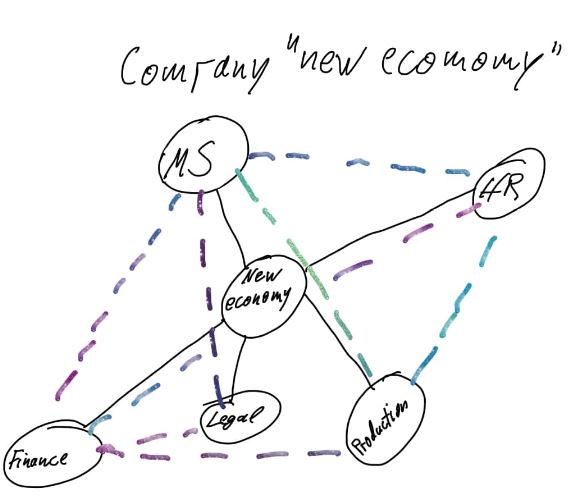 Company "new economy"
MS
HR
New
economy
Legal
Production
Finance